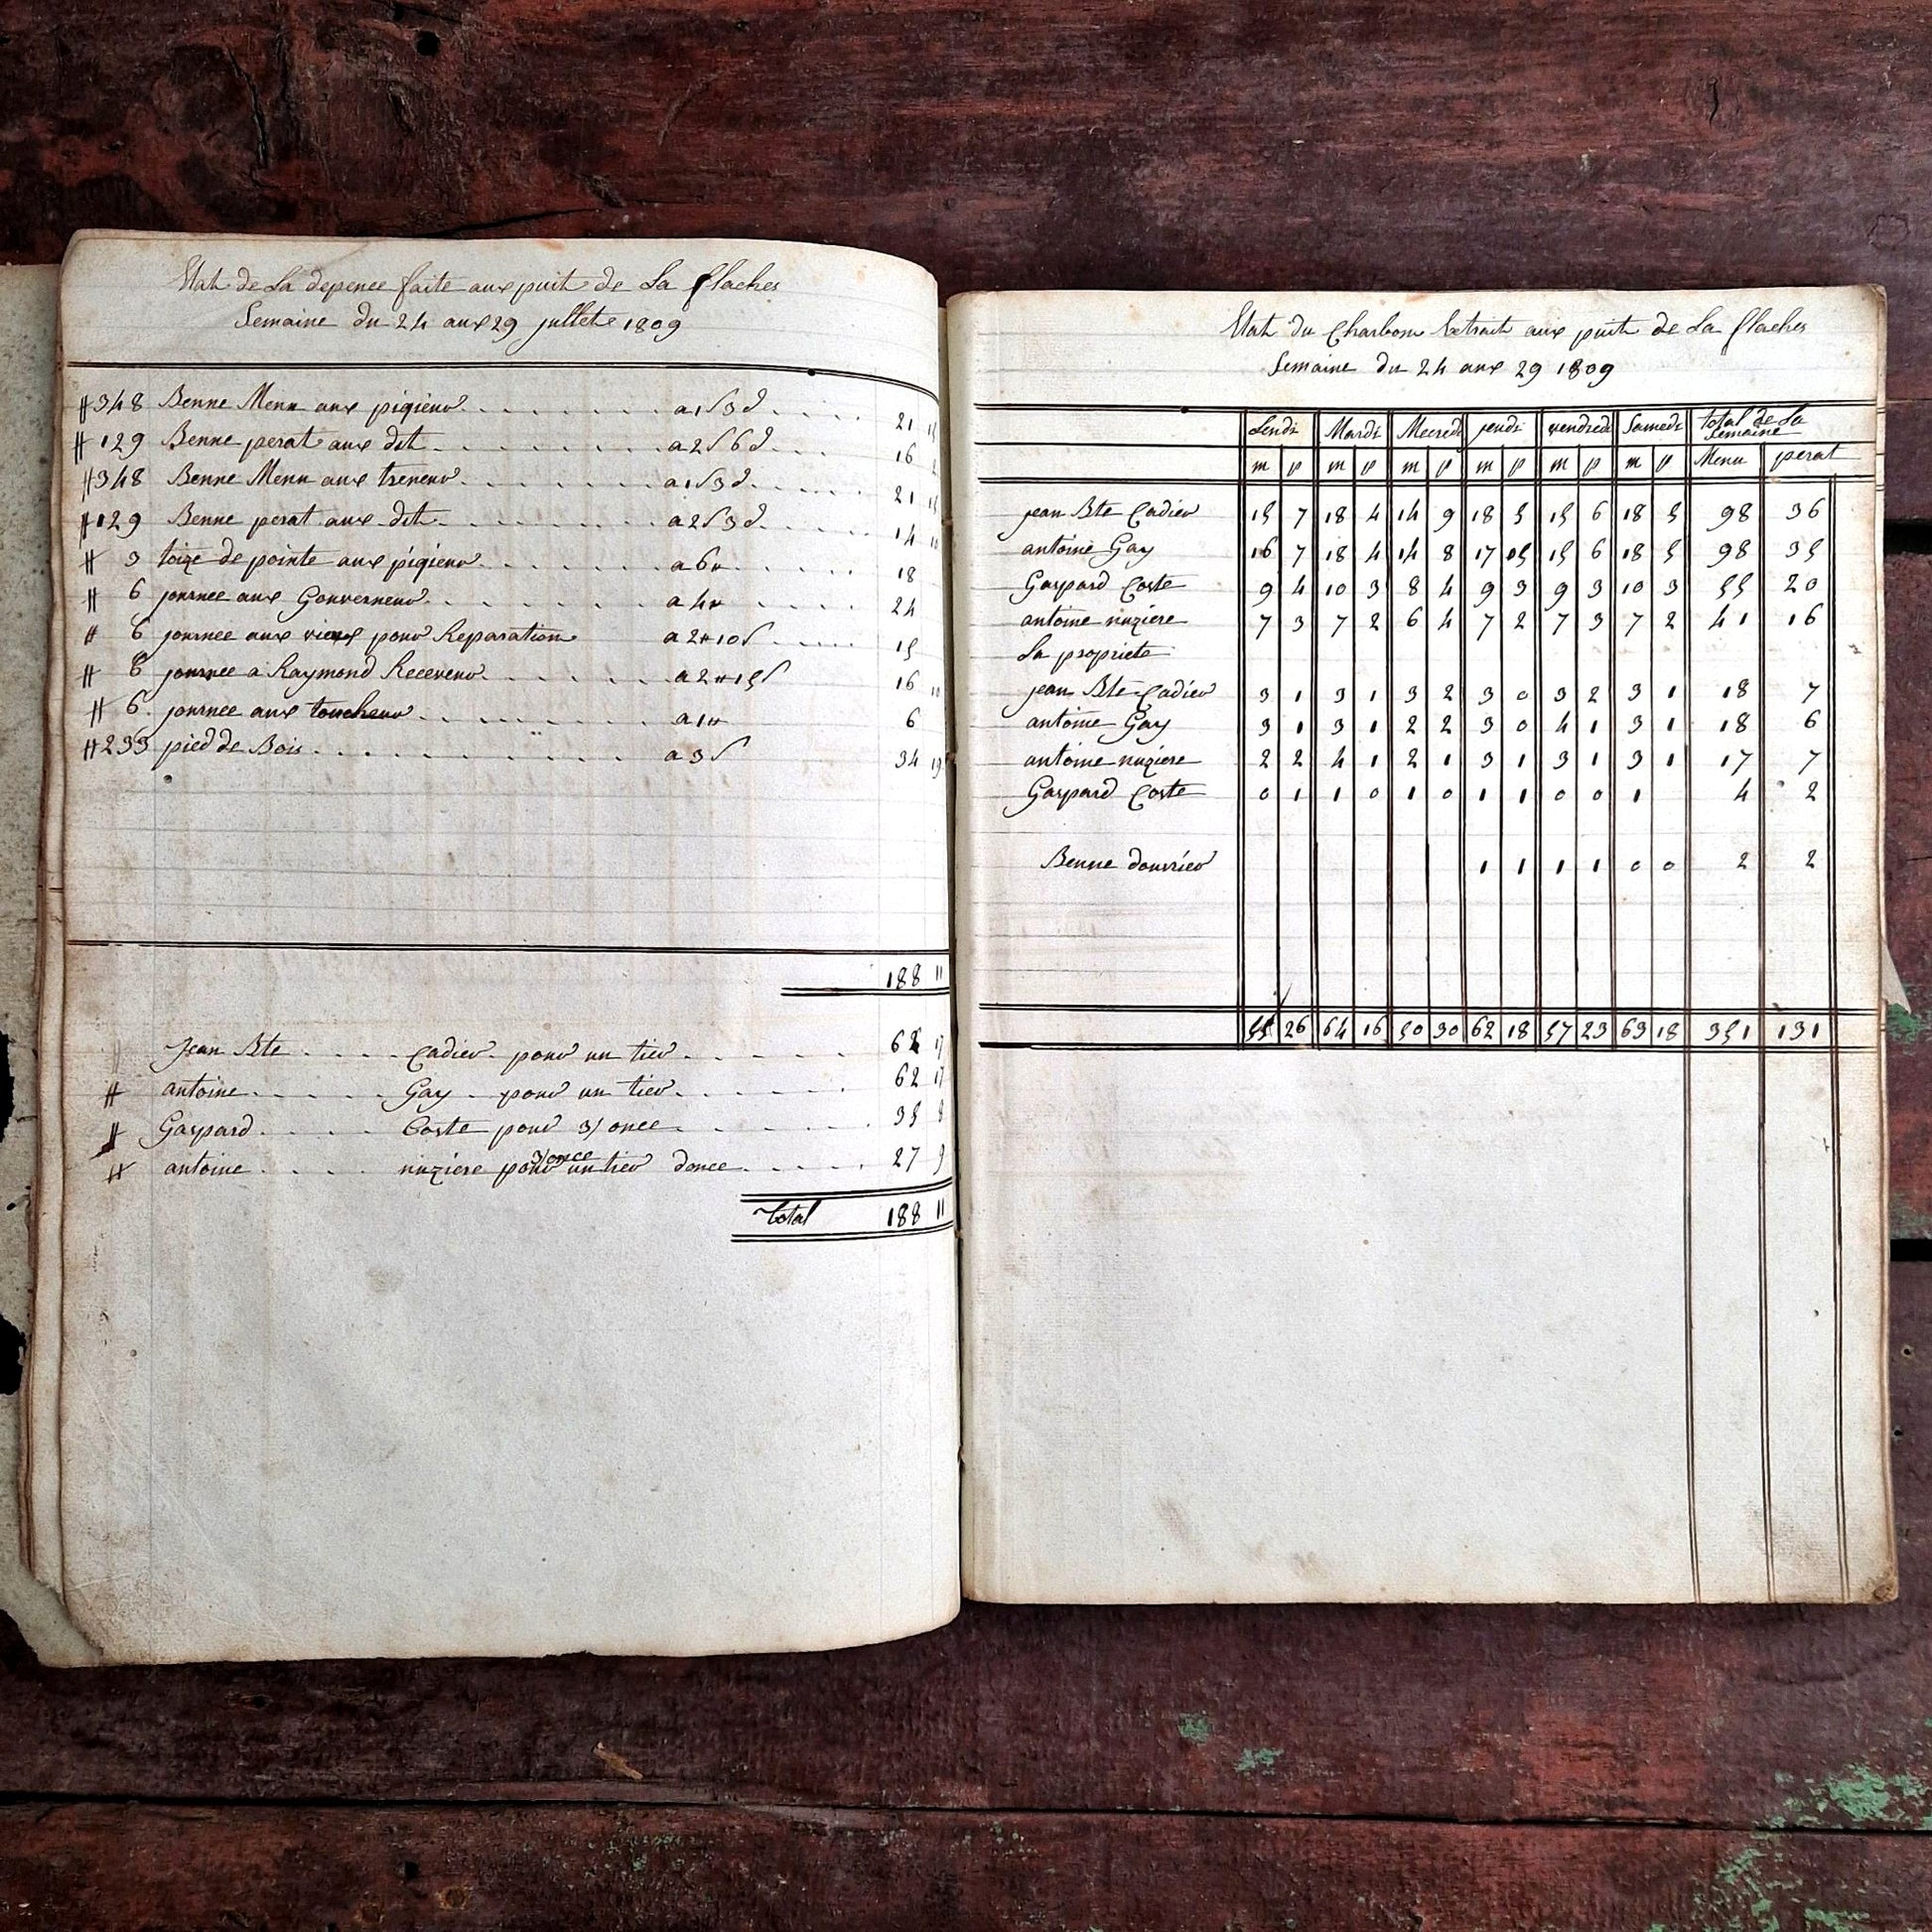 Etat de La depence faite aux puit de La flaches
Semaine du 24 aux 29 jullete 1809
# 348 Benne Menu aux pigieur a 1 s 3 d 21 15
# 129 Benne perat aux dit a 2 s 6 d 16 2
# 348 Benne Menu aux treneur a 1 s 3 d 21 15
# 129 Benne perat aux dit a 2 s 3 d 14 10
# 3 toize de pointe aux pigieur a 6# 18
# 6 journee aux Gouverneur a 4# 24
# 6 journee aux vieux pour Reparation a 2#10 s 15
# 6 journee a Raymond Receveur a 2#15 s 16 10
# 6 journee aux toucheur a 1# 6
# 233 pied de Bois a 3 s 34 19
188 11
Jean Bte Cadier pour un tier 62 17
# antoine Gay pour un tier 62 17
# Gaspard Coste pour 3/ once 35 8
# antoine nuziere pour un tier donce 3/ once 27 9
Total 188 11
Etat du Charbon Extrait aux puit de La flaches
Semaine du 24 aux 29 1809
Lendi Mardi Mecredi jeudi vendredi Samedi total de La Semaine
m p m p m p m p m p m p Menu perat
jean Bte Cadier 15 7 18 4 14 9 18 5 15 6 18 5 98 36
antoine Gay 16 7 18 4 14 8 17 05 15 6 18 5 98 35
Gaspard Coste 9 4 10 3 8 4 9 3 9 3 10 3 55 20
antoine nuziere 7 3 7 2 6 4 7 2 7 3 7 2 41 16
La propriete
jean Bte Cadier 3 1 3 1 3 2 3 0 3 2 3 1 18 7
antoine Gay 3 1 3 1 2 2 3 0 4 1 3 1 18 6
antoine nuziere 2 2 4 1 2 1 3 1 3 1 3 1 17 7
Gaspard Coste 0 1 1 0 1 0 1 1 0 0 1 4 2
Benne douvrier 1 1 1 1 0 0 2 2
55 26 64 16 50 30 62 18 57 23 63 18 351 131